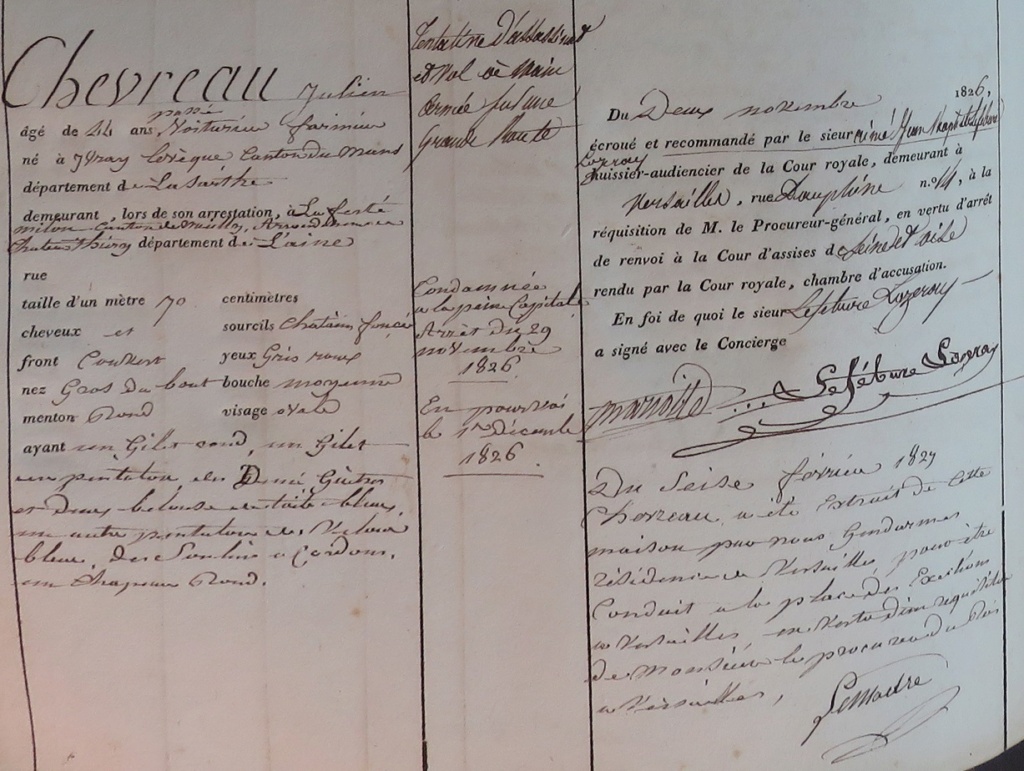 Chevreau Julien
passé
âgé de 44 ans Voiturier farinier
né à Yvray Levêque Canton du Mans
département de La Sarthe
demeurant, lors de son arrestation, à La ferté
milon Canton de Neuilly, Arrondissement
Chateau Thierry département de L'aine
rue
taille d'un mètre 70 centimètres
cheveux et sourcils Chatain foncé
front Couvert yeux Gris roux
nez Gros du bout bouche moyenne
menton Rond visage ovale
ayant un Gilet rond, un Gilet
un pentalon des Demi Guêtres
et Deux belouse de toile bleus,
un autre pentalon de Velour
bleue, des Soulier a Cordons,
un Chapeau Rond.
Tentative D'assassinat
et Vol à Main
Armée sur une
Grande Route
Condamnée
a la peine Capitale
Arrêt Du 29
novembre
1826.
En pourvoi
le 1er Décembre
1826.
Du Deux novembre 1826,
écroué et recommandé par le sieur réné Jean Bapt Lefebure
Lozeray huissier-audiencier de la Cour royale, demeurant à
Versailles, rue Dauphine n.o 14, à la
réquisition de M. le Procureur-général, en vertu d'arrêt
de renvoi à la Cour d'assises de Seine et oise
rendu par la Cour royale, chambre d'accusation.
En foi de quoi le sieur Lefebure Lozeray
a signé avec le Concierge
Lefébure Lozeray
Du Seise févrieu 1827
Chevreau a été Extrait de Cette
maison par nous Gendarmes
résidence de Versailles, pour être
Conduit a la place des Exections
a Versailles, en Vertu D'un requisitoire
de Monsieur le procureur du Roi
a Versailles,
LeMaitre